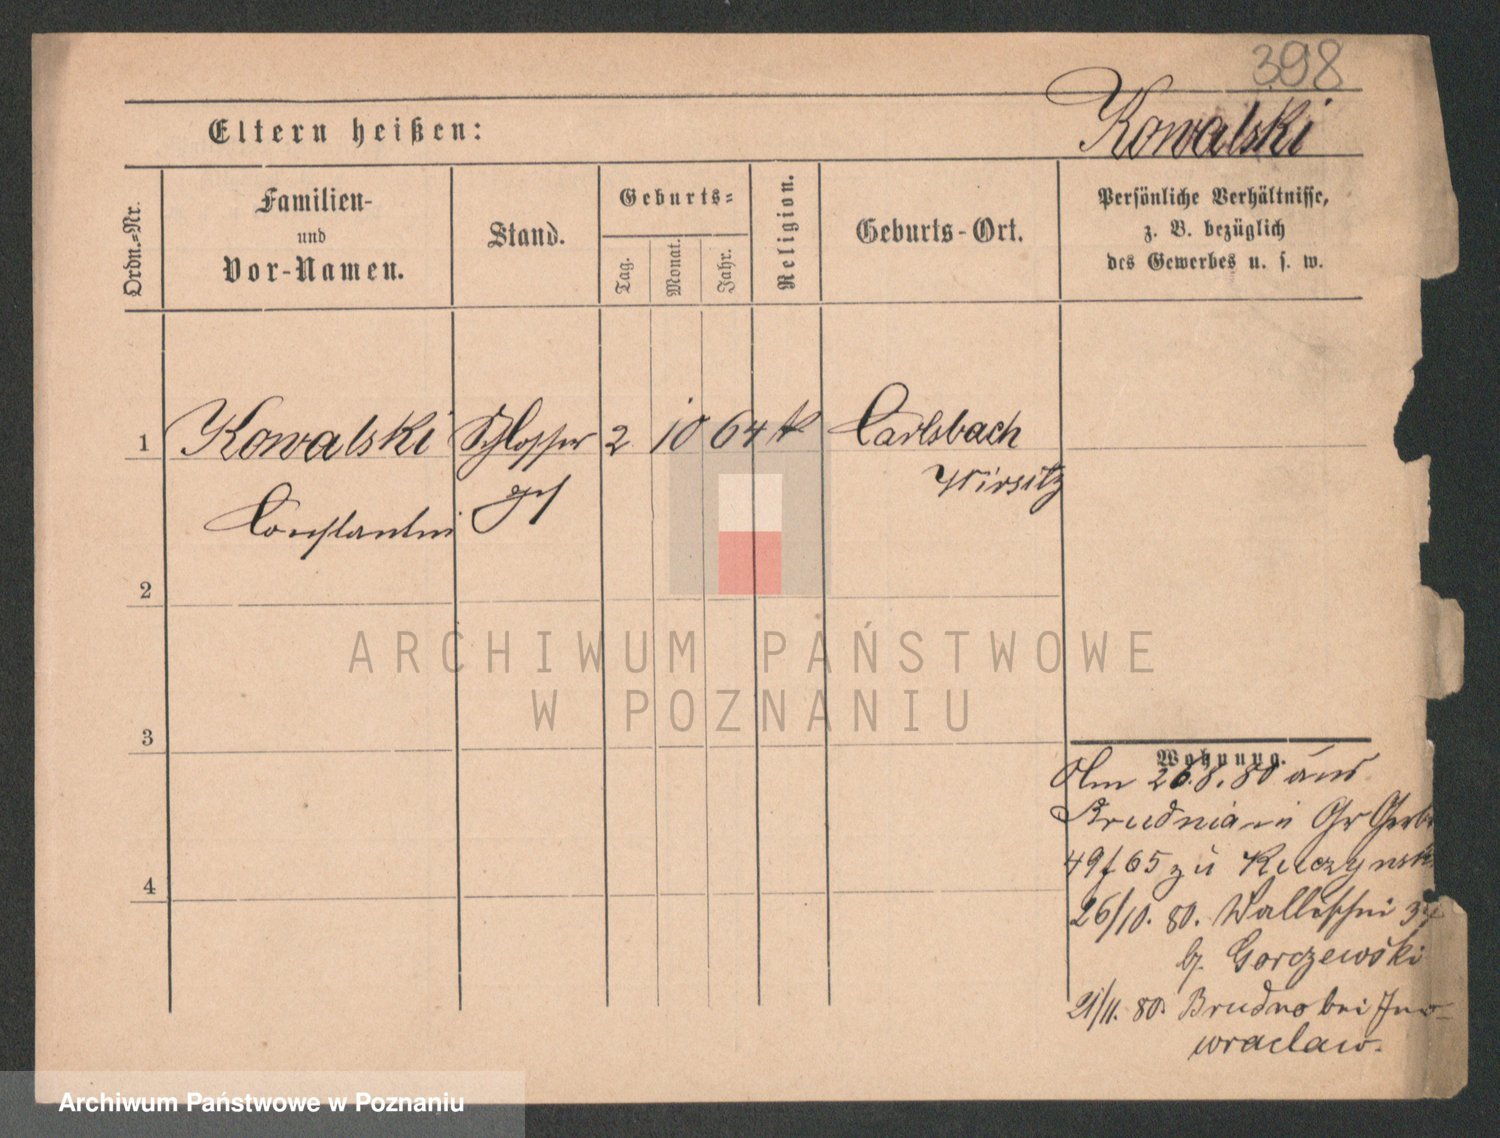 398
Eltern heißen:
Kowalski
Ordn.=Nr.
Familien-
und
Vor-Namen.
Stand.
Geburts=
Tag.
Monat.
Jahr.
Religion.
Geburts-Ort.
Persönliche Verhältnisse,
z. B. bezüglich
des Gewerbes u. s. w.
1 Kowalski Schlosser 2 10 64 k Carlsbach
Wirsitz
Constantin
2
3
4
Wohnung.
26.8.80 aus
Gr Gerb
49 65 zu Kuczynsk
26/10. 80. Wallischei 34
b. Gorczewski
21/11. 80. Brudno bei Ino-
wraclaw.
ARCHIWUM PAŃSTWOWE
W POZNANIU
Archiwum Państwowe w Poznaniu